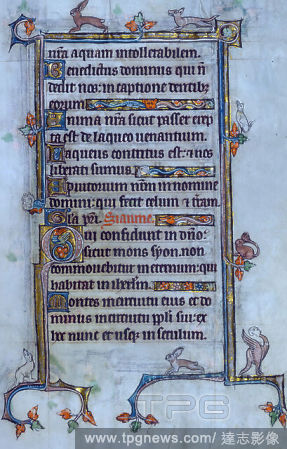 nr̃a aquam intollerabilem.
Benedictus dominus qui ñ
dedit nos: in captione dentib;
eorum
Anima nr̃a sicut passer erep
ta est de laqueo uenantium.
Laqueus contritus est: & nos
liberati sumus.
Adiutorium nr̃m in nomine
domini: qui fecit celum & t̃ram.
Gl'a pr̃i.
Qui confidunt in dño:
sicut mons syon. non
commouebitur in eternum: qui
habitat in ihrl'm.
Montes in circuitu eius et do
minus in circuitu pl'i sui: ex
hc nunc et usq; in seculum.
TPG
www.tpgnews.com/ 達志影像